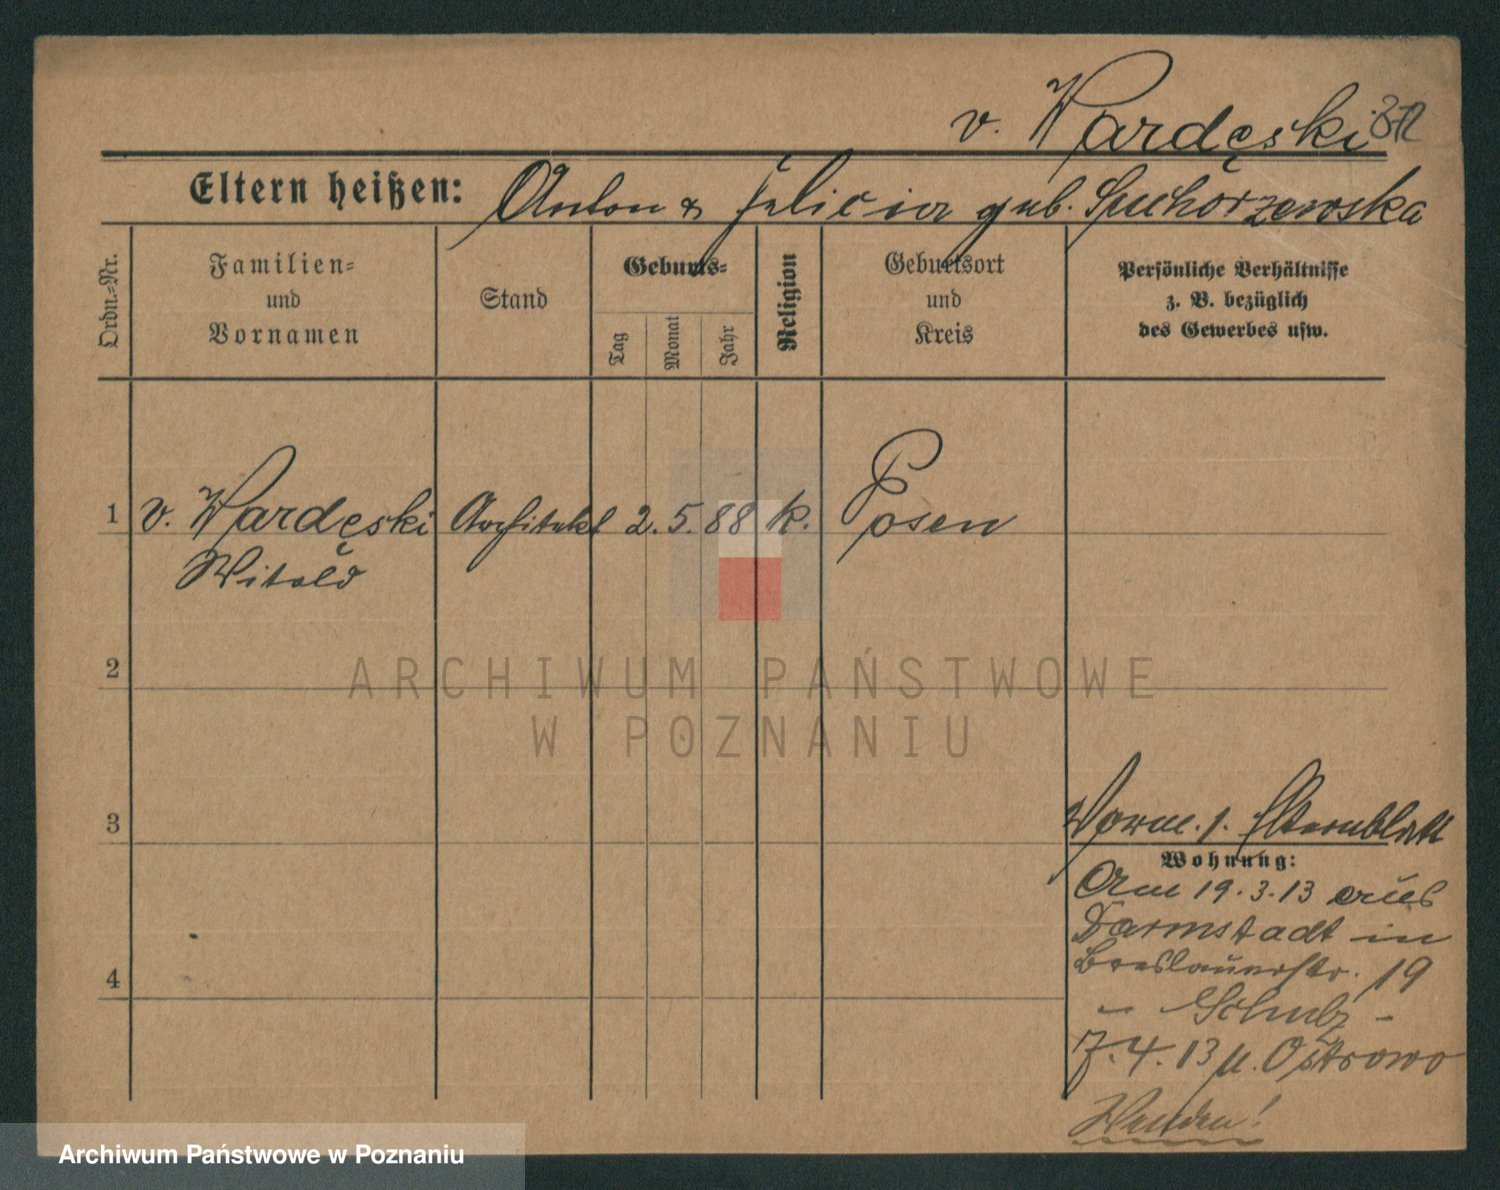 v. Wardęski
Eltern heißen: Anton & Felicia geb. Suchorzewska
Ordn.-Nr.
Familien-
und
Vornamen
Stand
Geburts-
Tag
Monat
Jahr
Religion
Geburtsort
und
Kreis
Persönliche Verhältnisse
z. B. bezüglich
des Gewerbes usw.
1 v. Wardęski Architekt 2. 5. 88 k. Posen
Witold
2
ARCHIWUM PAŃSTWOWE
W POZNANIU
3
Vorm. s. Elternblatt
Wohnung:
Am 19.3.13 aus
Darmstadt in
Breslauerstr. 19
4
- Schulz -
7.4.13 n. Ostrowo
Wenden!
Archiwum Państwowe w Poznaniu